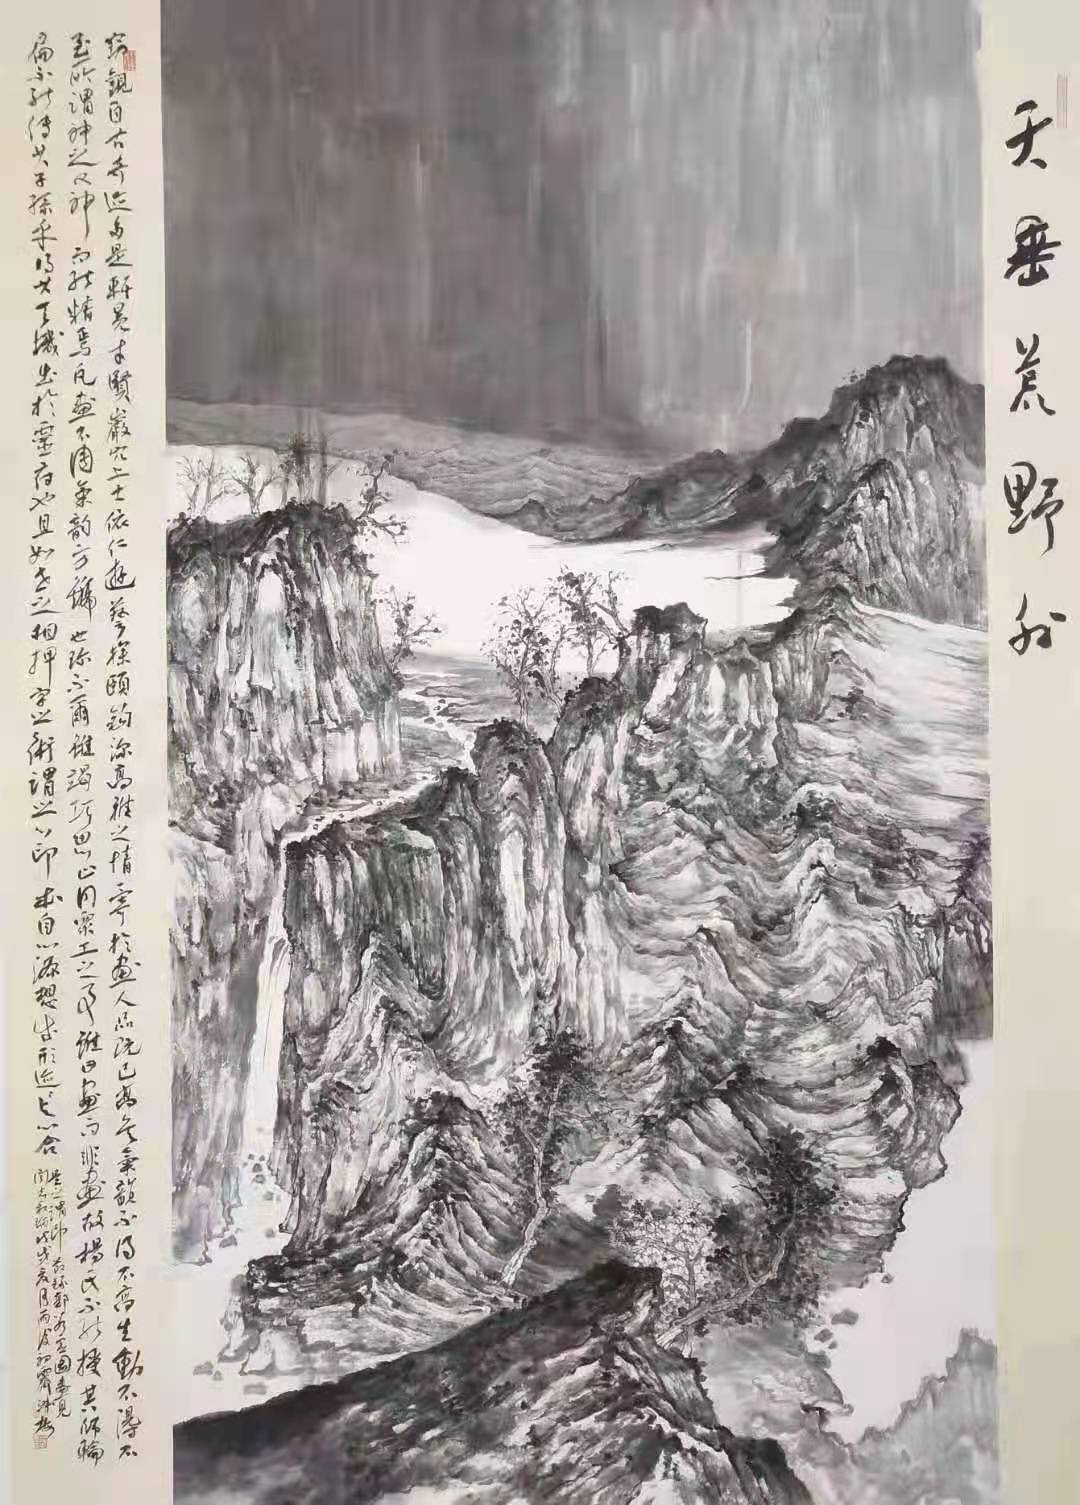 天垂荒野外
窃觀自古奇迹多是軒冕才賢巖穴上士依仁遊藝探頤鈎深高雅之情寄於畫人品既已高矣氣韻不得不高生動不得不
至所謂神之又神而能精焉凡畫必周氣韻方號世珍不爾雖竭巧思止同眾工之事雖曰畫而非畫故楊氏不能授其師輪
扁不能傳其子孫乎得其天機出於靈府也且如世之相押字之術謂之心印本自心源想成形迹與心合
是之謂印 郭若虛圖畫見
聞志 戊戌 月雨後初霽